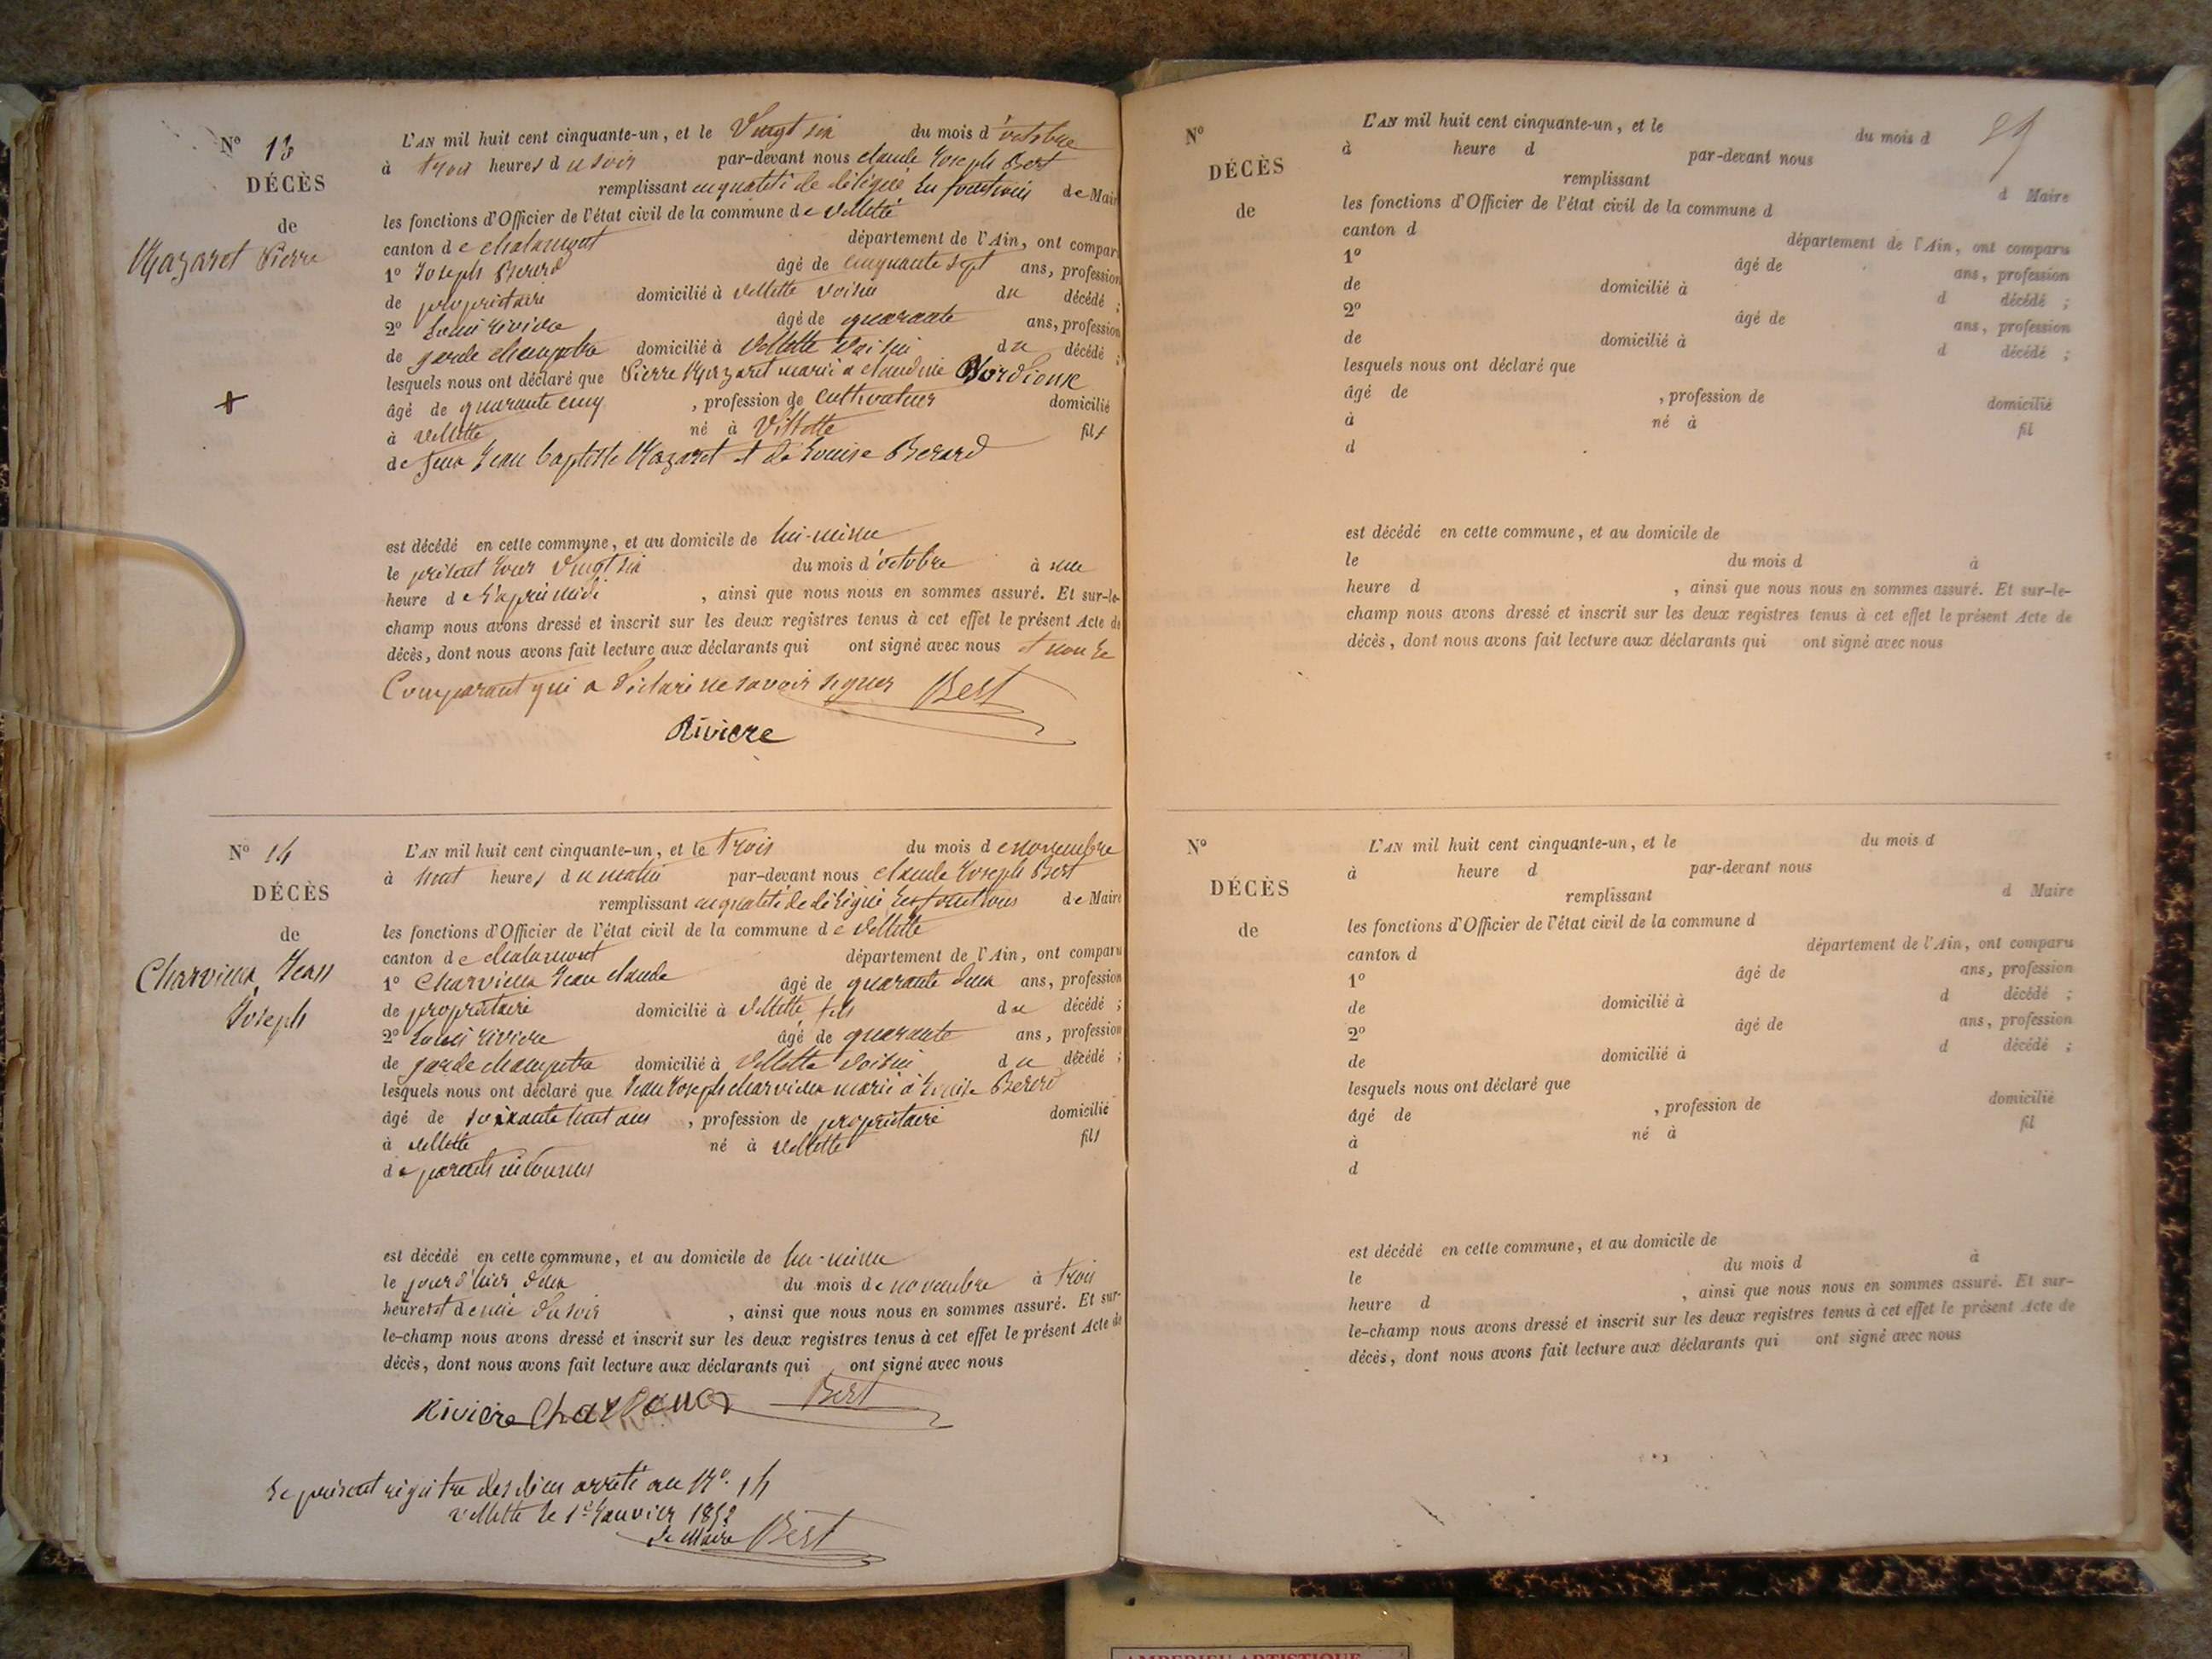 N° 13
DÉCÈS
de
Mazaret Pierre
L'AN mil huit cent cinquante-un, et le Vingt six du mois d'octobre
à trois heures du soir par-devant nous claude Joseph Bert
remplissant en qualité de délégué les fonctions de Maire
les fonctions d'Officier de l'état civil de la commune de Villette
canton de chalamont département de l'Ain, ont comparu
1° Joseph Berard âgé de cinquante sept ans, profession
de propriétaire domicilié à Villette voisin du décédé ;
2° Louis Riviere âgé de quarante ans, profession
de garde champetre domicilié à Villette voisin du décédé ;
lesquels nous ont déclaré que Pierre Mazaret marié a claudine
âgé de quarante cinq , profession de cultivateur domicilié
à Villette né à Villette fils
de feu Jean baptiste Mazaret et de Louise Berard
est décédé en cette commune, et au domicile de lui-même
le présent Jour vingt six du mois d'octobre à une
heure de l'après midi , ainsi que nous nous en sommes assuré. Et sur-le-
champ nous avons dressé et inscrit sur les deux registres tenus à cet effet le présent Acte de
décès, dont nous avons fait lecture aux déclarants qui ont signé avec nous et non le
Comparant qui a déclaré ne savoir signer Bert
Riviere
N° 14
DÉCÈS
de
Charvieux Jean
Joseph
L'AN mil huit cent cinquante-un, et le trois du mois de novembre
à huit heures du matin par-devant nous claude Joseph Bert
remplissant en qualité de délégué les fonctions de Maire
les fonctions d'Officier de l'état civil de la commune de Villette
canton de chalamont département de l'Ain, ont comparu
1° Charvieux Jean claude âgé de quarante deux ans, profession
de propriétaire domicilié à Villette fils du décédé ;
2° Louis Riviere âgé de quarante ans, profession
de garde champetre domicilié à Villette voisin du décédé ;
lesquels nous ont déclaré que Jean Joseph charvieux marié à Louise Berard
âgé de soixante huit ans , profession de propriétaire domicilié
à Villette né à Villette fils
de parents inconnus
est décédé en cette commune, et au domicile de lui-même
le jour d'hier deux du mois de novembre à trois
heures et demie du soir , ainsi que nous nous en sommes assuré. Et sur-
le-champ nous avons dressé et inscrit sur les deux registres tenus à cet effet le présent Acte de
décès, dont nous avons fait lecture aux déclarants qui ont signé avec nous
Riviere Bert
Le présent régistre des décès arrêté au N°. 14
Villette le 1er Janvier 1852
Le Maire Bert
89
N°
DÉCÈS
de
L'AN mil huit cent cinquante-un, et le du mois d
à heure d par-devant nous
remplissant d Maire
les fonctions d'Officier de l'état civil de la commune d
canton d département de l'Ain, ont comparu
1° âgé de ans, profession
de domicilié à d décédé ;
2° âgé de ans, profession
de domicilié à d décédé ;
lesquels nous ont déclaré que
âgé de , profession de domicilié
à né à fil
d
est décédé en cette commune, et au domicile de
le du mois d à
heure d , ainsi que nous nous en sommes assuré. Et sur-le-
champ nous avons dressé et inscrit sur les deux registres tenus à cet effet le présent Acte de
décès, dont nous avons fait lecture aux déclarants qui ont signé avec nous
N°
DÉCÈS
de
L'AN mil huit cent cinquante-un, et le du mois d
à heure d par-devant nous
remplissant d Maire
les fonctions d'Officier de l'état civil de la commune d
canton d département de l'Ain, ont comparu
1° âgé de ans, profession
de domicilié à d décédé ;
2° âgé de ans, profession
de domicilié à d décédé ;
lesquels nous ont déclaré que
âgé de , profession de domicilié
à né à fil
d
est décédé en cette commune, et au domicile de
le du mois d à
heure d , ainsi que nous nous en sommes assuré. Et sur-
le-champ nous avons dressé et inscrit sur les deux registres tenus à cet effet le présent Acte de
décès, dont nous avons fait lecture aux déclarants qui ont signé avec nous